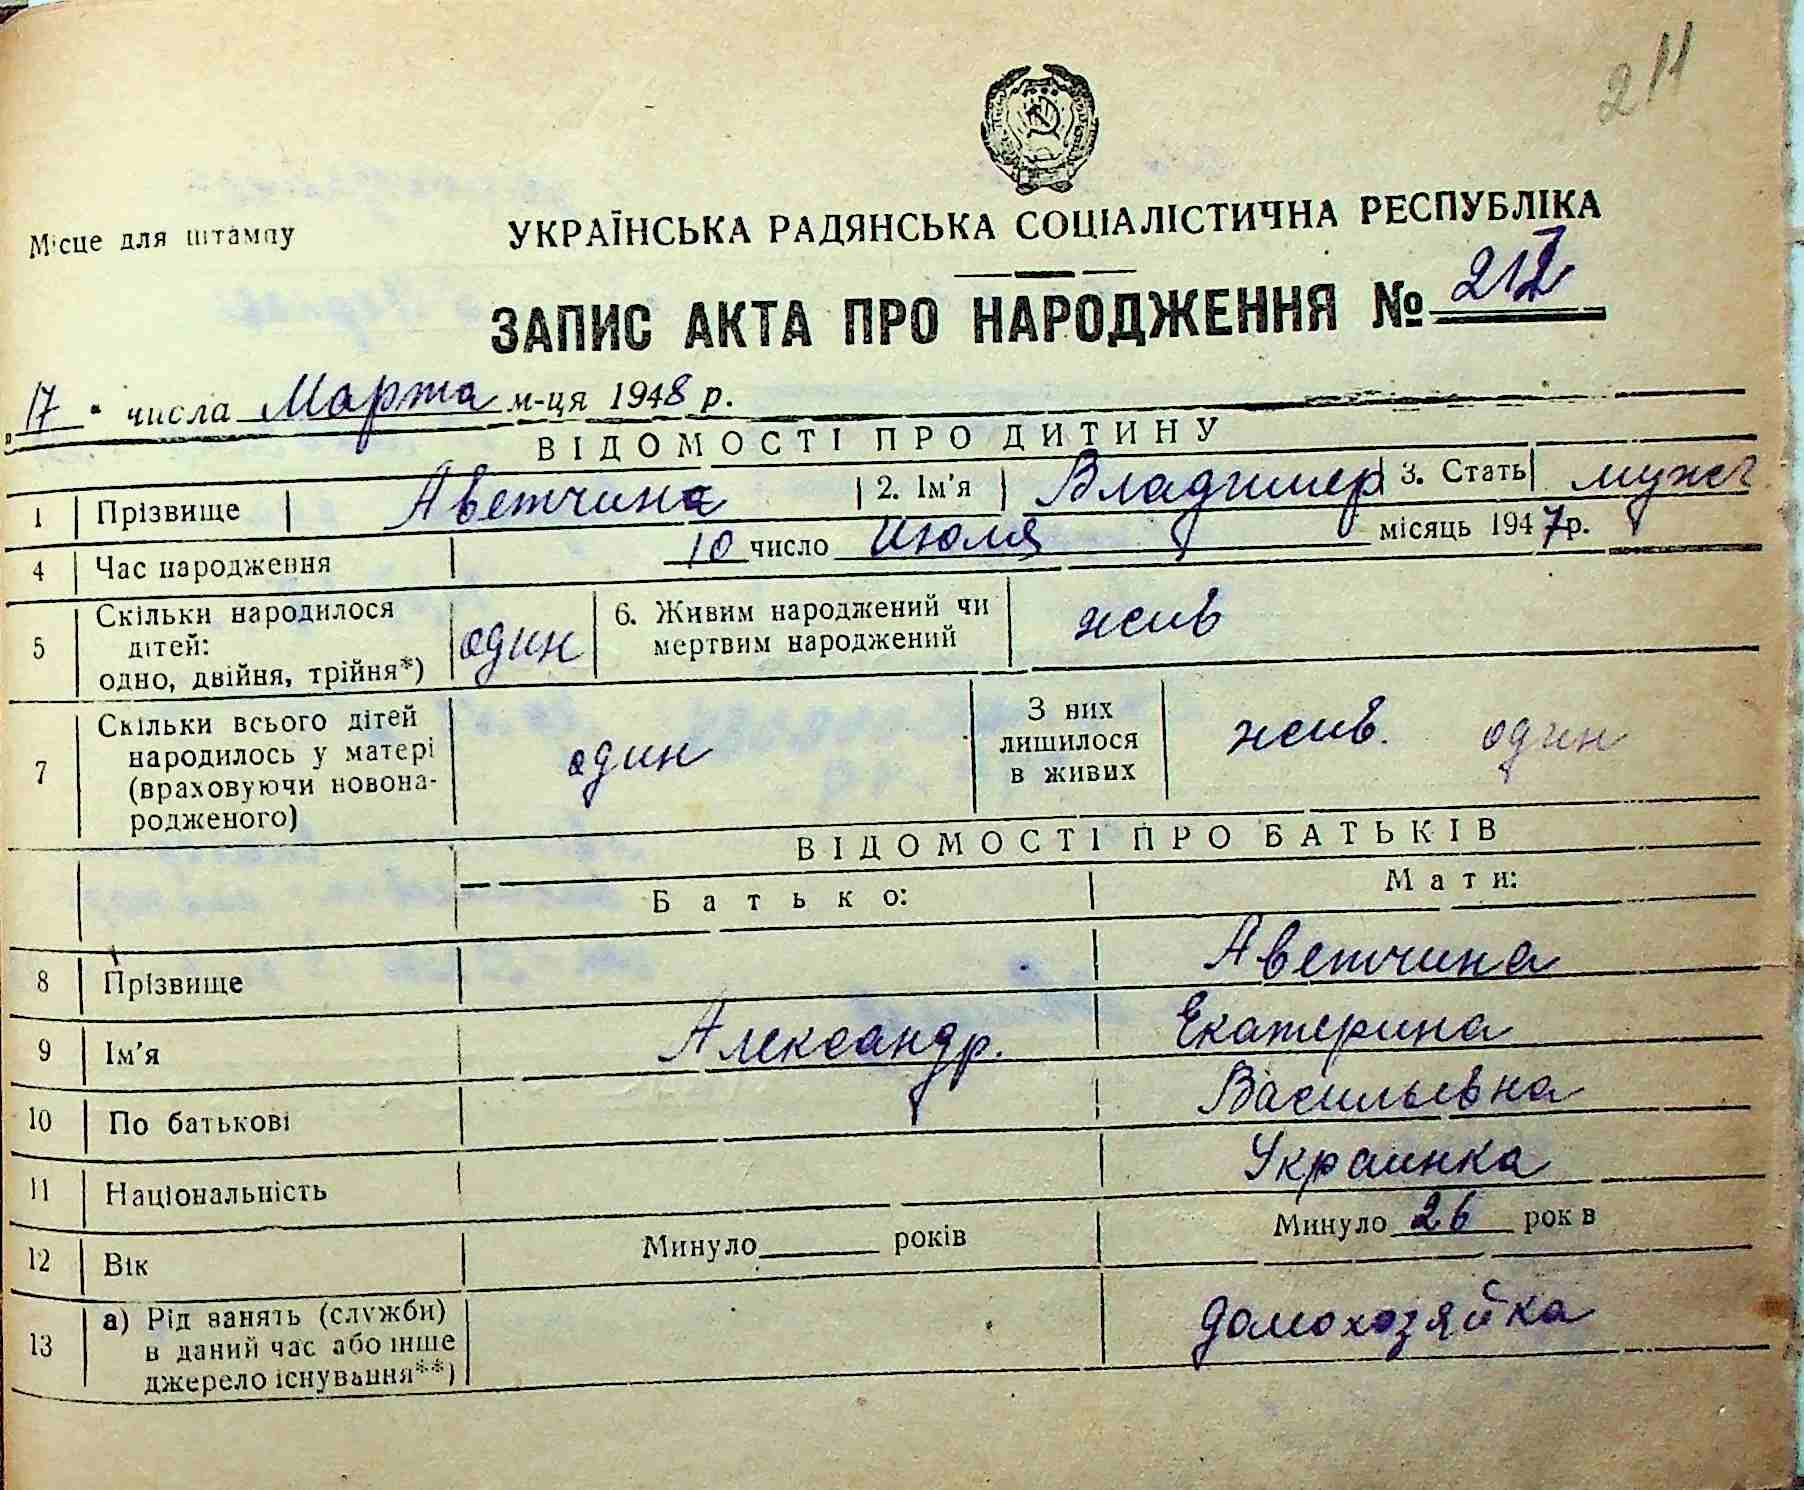 211
Місце для штампу
УКРАЇНСЬКА РАДЯНСЬКА СОЦІАЛІСТИЧНА РЕСПУБЛІКА
ЗАПИС АКТА ПРО НАРОДЖЕННЯ №
„17" числа Марта м-ця 1948 р.
ВІДОМОСТІ ПРО ДИТИНУ
1 Прізвище Аветчина 2. Ім'я Владимер 3. Стать мужс
4 Час народження 10 число Июля місяць 1947 р.
5 Скільки народилося дітей: одно, двійня, трійня*) один 6. Живим народжений чи мертвим народжений жив
7 Скільки всього дітей народилось у матері (враховуючи новонародженого) один З них лишилося в живих жив. один
ВІДОМОСТІ ПРО БАТЬКІВ
Батько: Мати:
8 Прізвище Аветчина
9 Ім'я Александр. Екатерина
10 По батькові Васильевна
11 Національність Украинка
12 Вік Минуло років Минуло 26 рок в
13 а) Рід занять (служби) в даний час або інше джерело існування**) домохозяйка